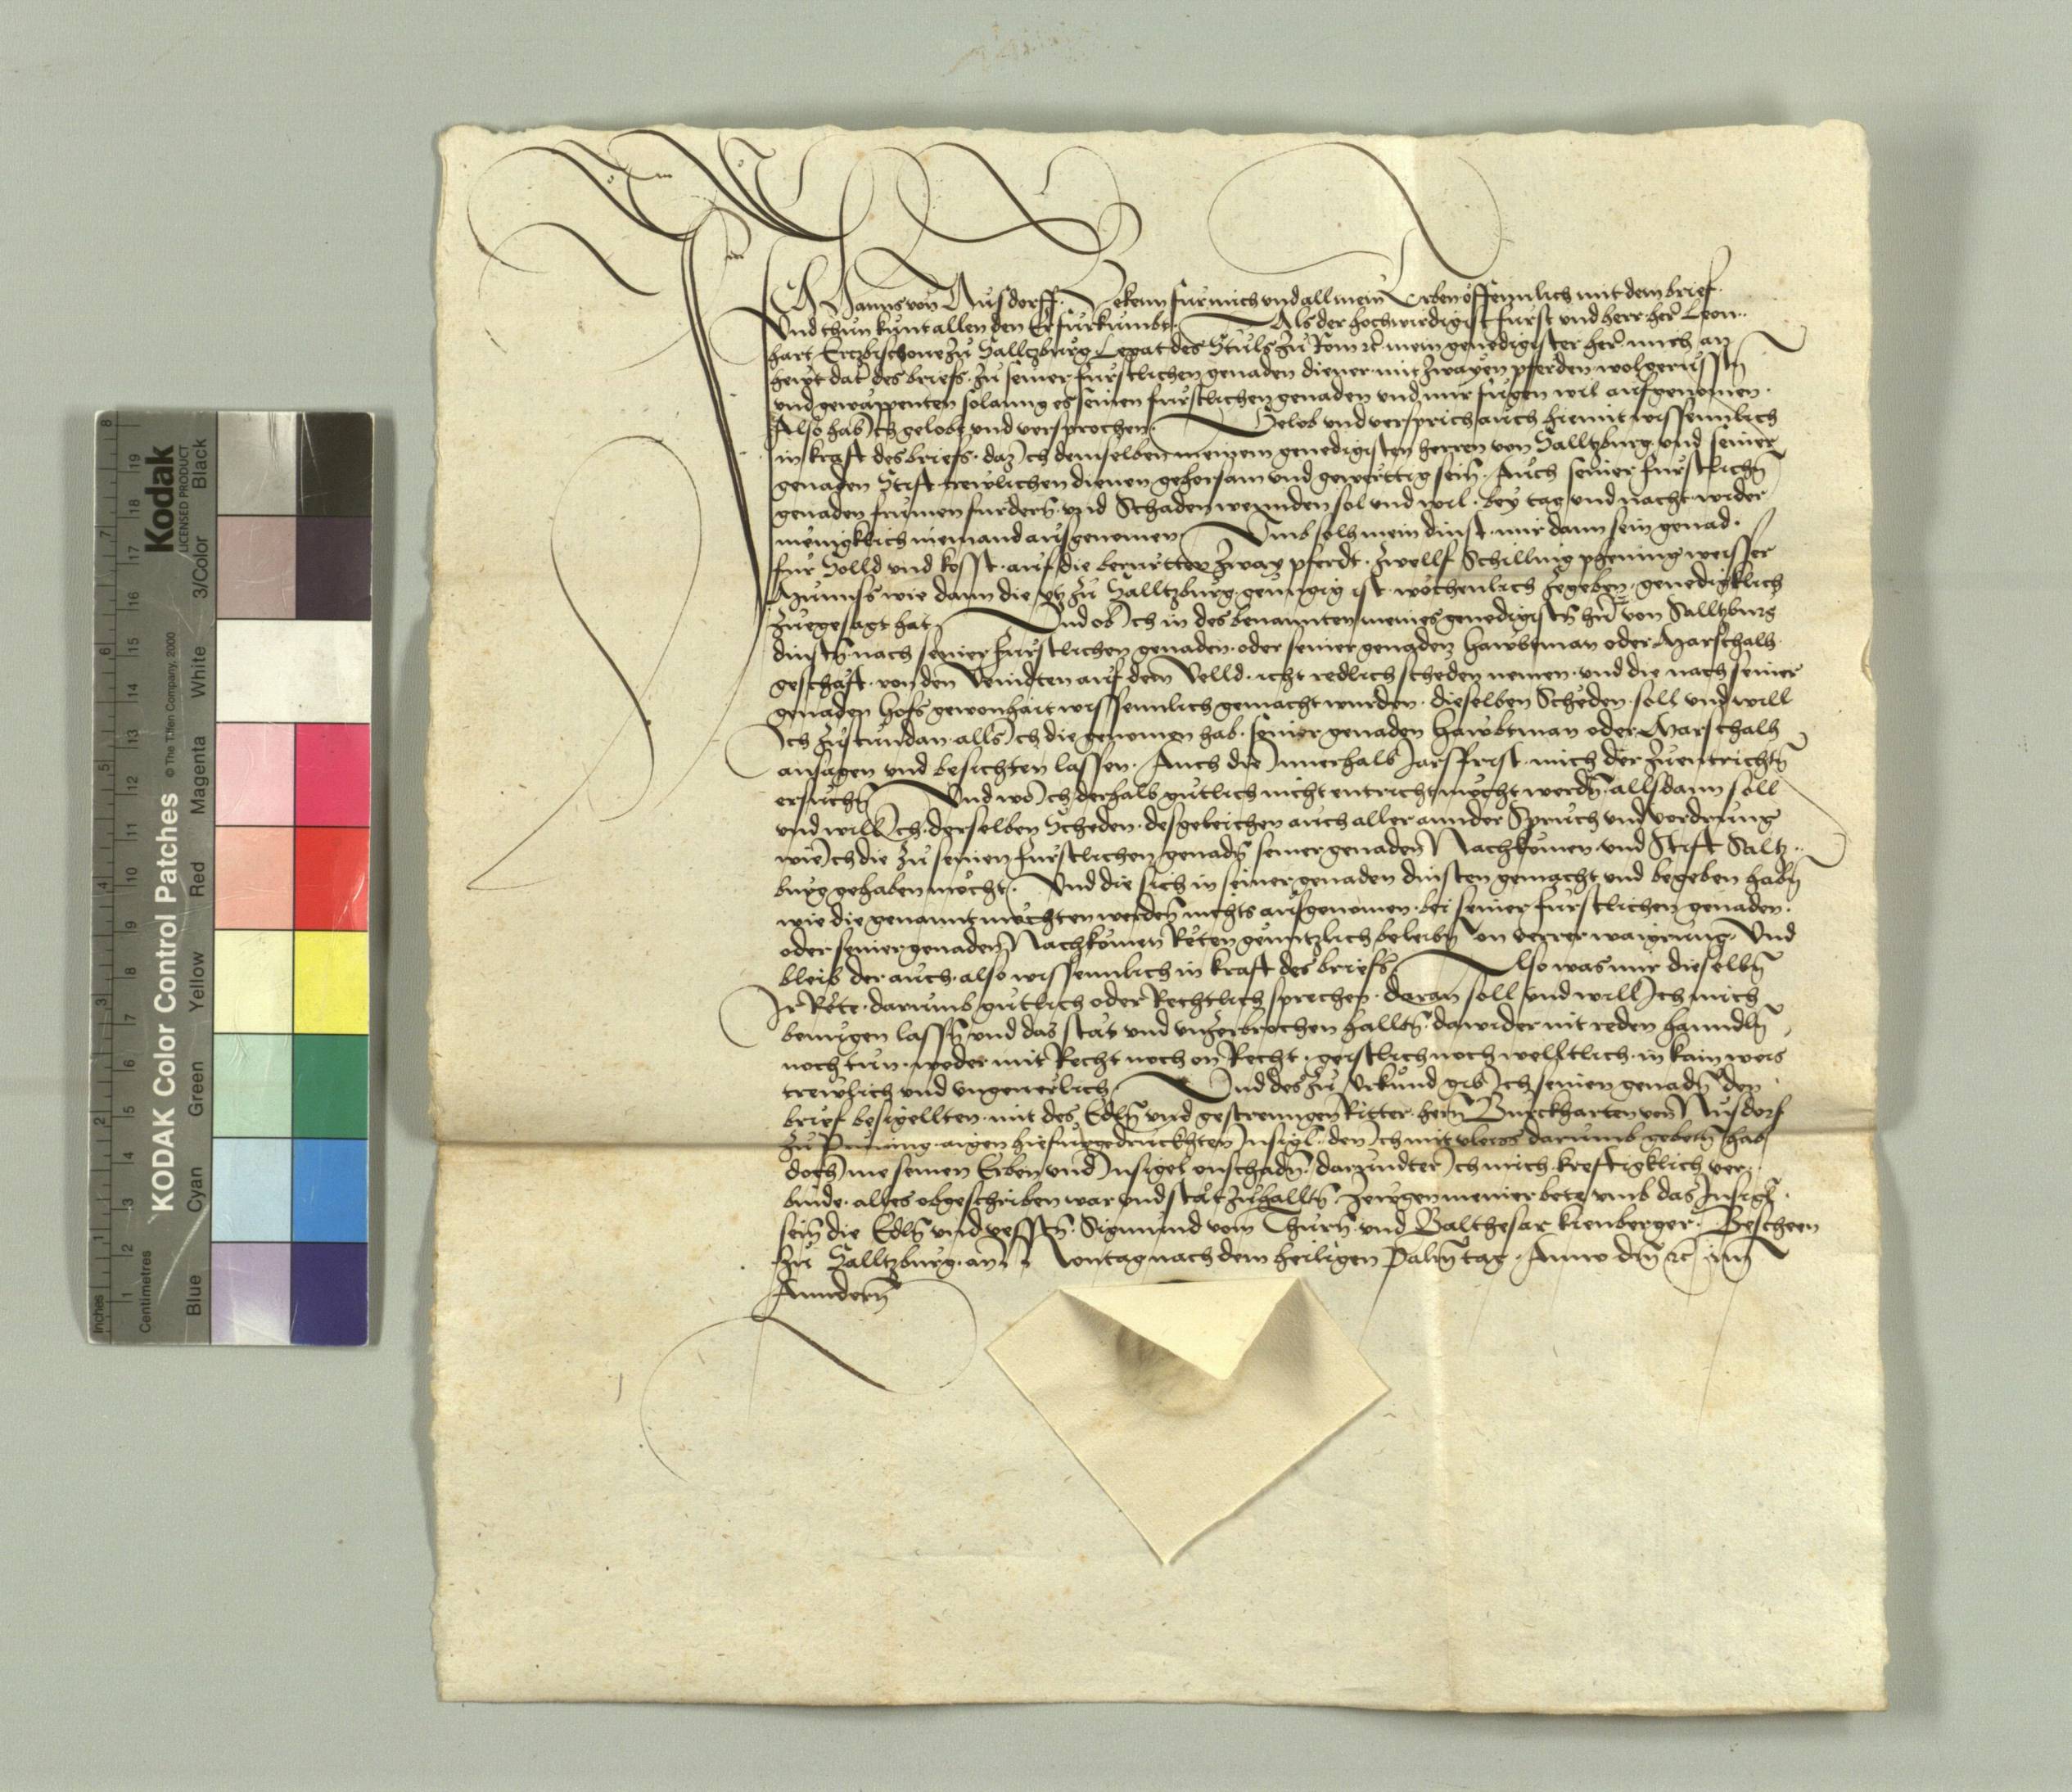 Kodak
LICENSED PRODUCT
KODAK Color Control Patches © The Tiffen Company, 2000
Blue Cyan Green Yellow Red Magenta White 3/Color Black
Inches 1 2 3 4 5 6 7 8
Centimetres 1 2 5 6 7 8 9 10 11 12 13 14 15 16 17 18 19
Ich Hanns von Nusdorff. Bekenn fur mich und all mein Erben offennlich mit dem brief
Und thun kunt allen den Er furkumbt. Als der hochwirdigist furst und herr her Leon..
hart Erczbischove zu Salltzburg Legat des Stuls zu Rom rc mein genedigister her mich an
hewt dat des briefs zu seiner furstlichen genaden diener mit zwayen pferden wolgerusstn
und gewappenten solanng es seinen furstlichen genaden und mir fugen wil aufgenomen.
Also hab Ich gelobt und versprochen. Gelob und versprich auch hiemit wissennlich
in kraft des briefs. daz Ich demselben meinem genedigisten herren von Salltzburg und seiner
genaden Stift trewlichen dienen gehorsam und gewerttig sein. Auch seiner furstlichn
genaden frumen furdern und Schaden wennden sol und wil. bey tag und nacht wider
menigklich niemand ausgenomen. Umb solh mein dinst mir dann sein genad.
fur Solld und kosst. auf die berurtten zway pferdt. zwellf Schilling phening weisser
Munnss wie dann die ytz zu Salltzburg genngig ist wochenlich zegeben genedigklich
zuegesagt hat. Und ob Ich in des benannten meines genedigistn hern von Salltzburg
dinstn nach seiner furstlichen genaden. oder seiner genaden hawbtman oder Marschalh
geschaft. von den Veindten auf dem Velld. icht redlich scheden nemen. und die nach seiner
genaden hofs gewonhait wissennlich gemacht wurden. dieselben Scheden soll und will
Ich zustundan alls Ich die genomen hab. seiner genaden hawbtman oder Marschalh
ansagen und besichten lassen. Auch die Innerhalb Jarsfrist mich der zuentrichtn
ersuchn. Und wo Ich derhalb gutlich nicht entricht mocht werdn. allsdann soll
und will Ich derselben Scheden. desgeleichen auch aller annder Spruch und vordrung
wie Ich die zu seinen furstlichen genadn seiner genaden Nachkomen und Stift Saltz..
burg gehaben mocht. Und die sich in seiner genaden dinsten gemacht und begeben habn
wie die genannt mochten werden nichts ausgenomen. bei seiner furstlichen genaden.
oder seiner genaden Nachkomen Reten genntzlich beleibn on verrer waigrung. Und
bleib der auch also wissennlich in kraft des briefs. Also was mir dieselbn
Ir Rete. darumb gutlich oder Rechtlich sprechen. daran soll und will Ich mich
benugen lassn und das stat und unzerbrochen halltn. dawider nit reden hanndln
noch tun. weder mit Recht noch on Recht. geistlich noch welltlich. in kain weis
trewlich und ungeverlich. Und des zu Urkund gib Ich seinen genadn den
brief besigellten mit des Edln und gestrenngen Ritter hern Burckharten von Nusdorf
zu Pruning aigen hiefurgedruckhten Insigl. den Ich mit vleiss darumb gebetn hab
doch Ime seinen Erben und Insigel onschadn. darundter Ich mich kreftigklich ver..
binde. alles obgeschriben war und stat zuhalltn. Zewgen meiner bete umb das Insigl.
sein die Edln und vesstn. Sigmund vom Thurn und Balthesar kienberger. Bescheen
zu Salltzburg. am Montag nach dem heiligen Palmtag. Anno dm rc im
Anndern